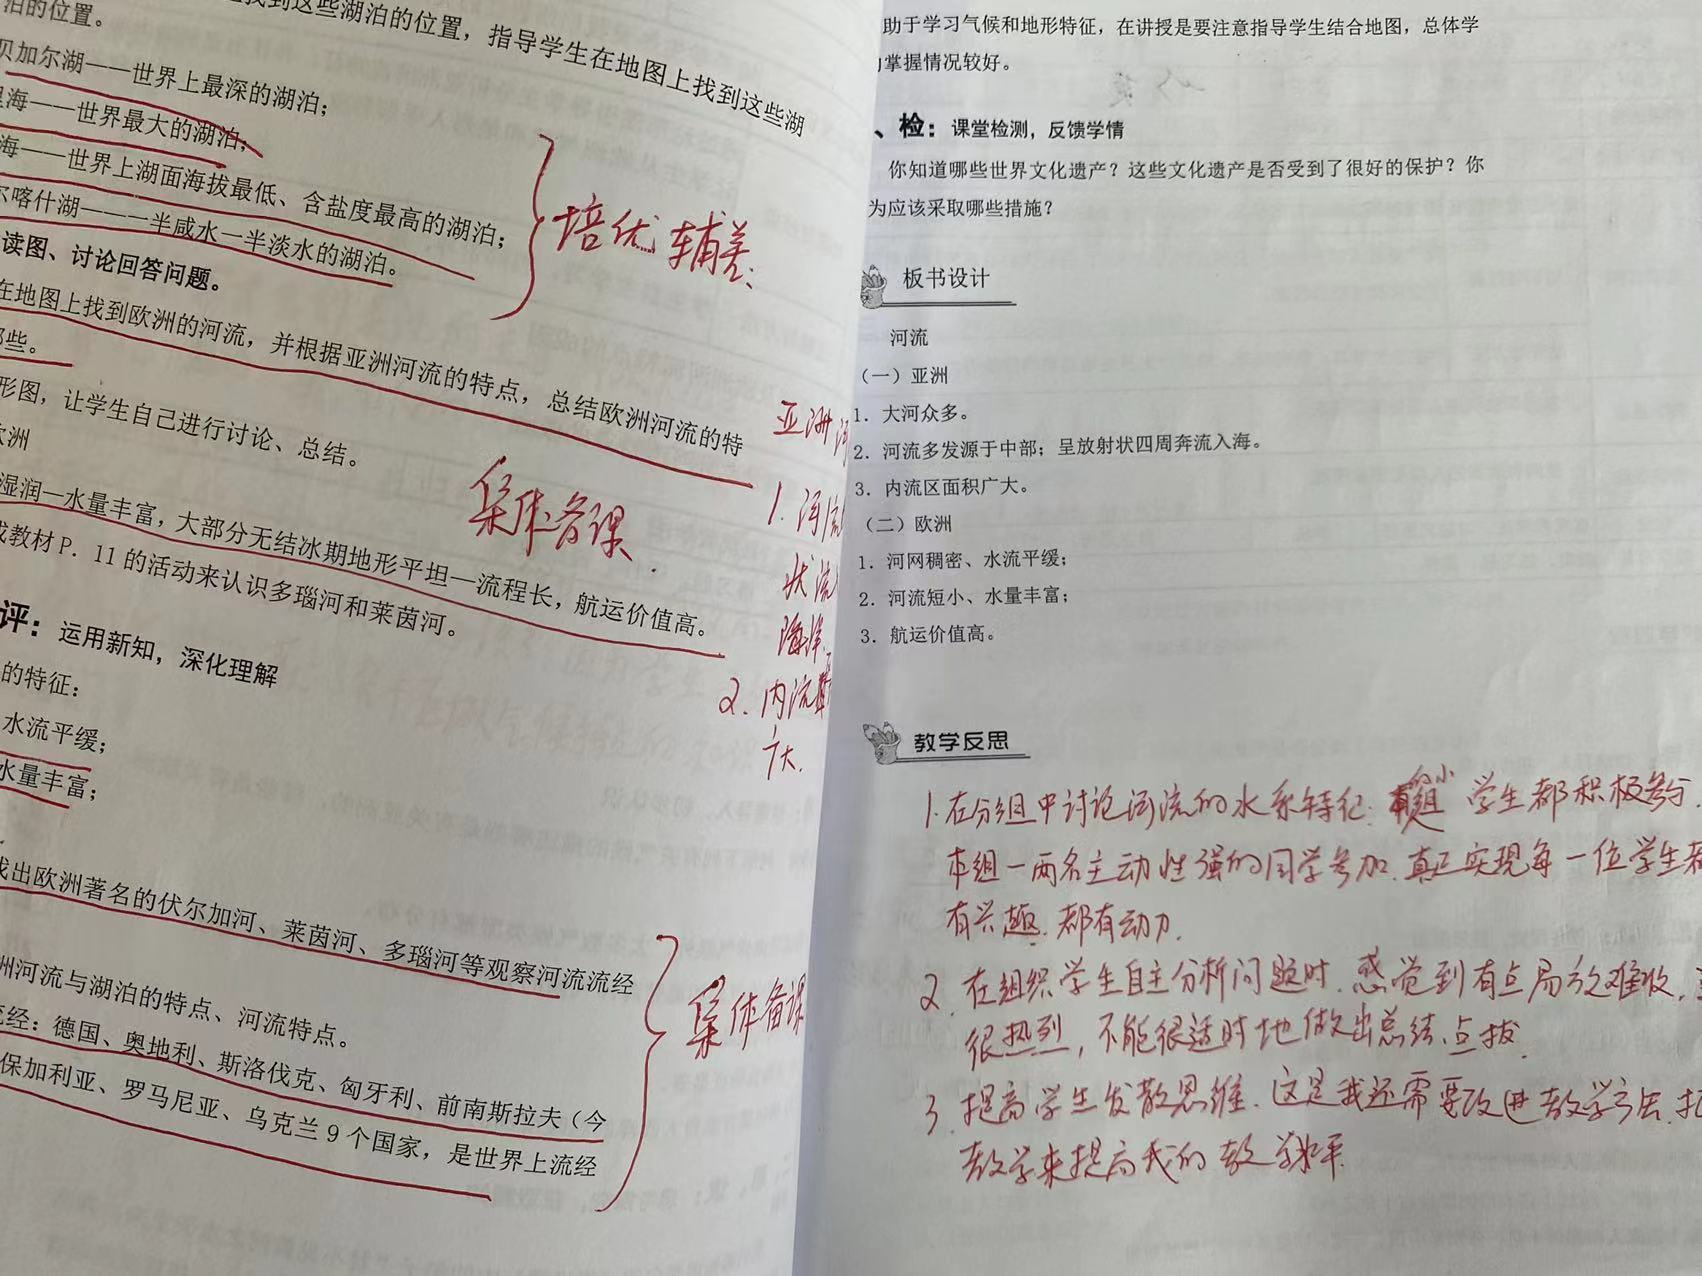 找到这些湖泊的位置，指导学生在地图上找到这些湖
泊的位置。
贝加尔湖——世界上最深的湖泊；
海——世界最大的湖泊；
海——世界上湖面海拔最低、含盐度最高的湖泊；
尔喀什湖———半咸水一半淡水的湖泊。
培优辅差：
读图、讨论回答问题。
在地图上找到欧洲的河流，并根据亚洲河流的特点，总结欧洲河流的特
些。
形图，让学生自己进行讨论、总结。
欧洲
湿润—水量丰富，大部分无结冰期地形平坦—流程长，航运价值高。
成教材P．11的活动来认识多瑙河和莱茵河。
集体备课.
亚洲河
1.河流
状流
海洋.
2.内流
广大.
评：运用新知，深化理解
的特征：
水流平缓；
水量丰富；
找出欧洲著名的伏尔加河、莱茵河、多瑙河等观察河流流经
洲河流与湖泊的特点、河流特点。
流经：德国、奥地利、斯洛伐克、匈牙利、前南斯拉夫（今
保加利亚、罗马尼亚、乌克兰9个国家，是世界上流经
集体备课
助于学习气候和地形特征，在讲授是要注意指导学生结合地图，总体学
掌握情况较好。
、检：课堂检测，反馈学情
你知道哪些世界文化遗产？这些文化遗产是否受到了很好的保护？你
为应该采取哪些措施？
板书设计
河流
（一）亚洲
1．大河众多。
2．河流多发源于中部；呈放射状四周奔流入海。
3．内流区面积广大。
（二）欧洲
1．河网稠密、水流平缓；
2．河流短小、水量丰富；
3．航运价值高。
教学反思
1.在分组中讨论河流的水系特征. 学生都积极参与.
本组一两名主动性强的同学参加.真正实现每一位学生都
有兴趣.都有动力.
2.在组织学生自主分析问题时.感觉到有点局放难收，
很热烈，不能很适时地做出总结、点拨.
3.提高学生发散思维.这是我还需要改进教学方法.
教学来提高我的教学水平.